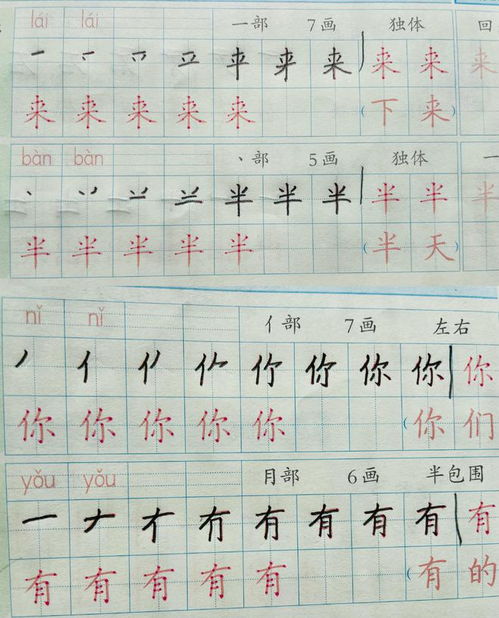 lái lái 一部 7画 独体 回
一 平 来 来 来 来
来 来 来 来 来 （下 来）
bàn bàn 丶部 5画 独体 一
丶 丷 半 半 半 半 半 半
半 半 半 半 半 （半 天）
nǐ nǐ 亻部 7画 左右
丿 亻 你 你 你 你
你 你 你 你 你 （你 们
yǒu yǒu 月部 6画 半包围
一 𠂇 有 有 有 有 有
有 有 有 有 有 （有 的